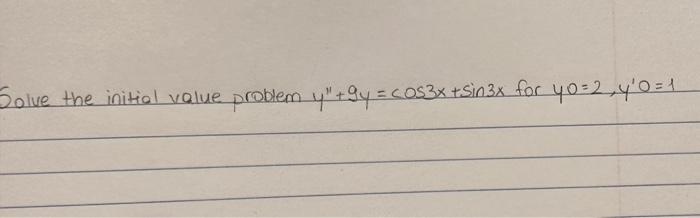 Solve the initial value problem y"+9y=cos3x+sin3x for y0=2, y'0=1